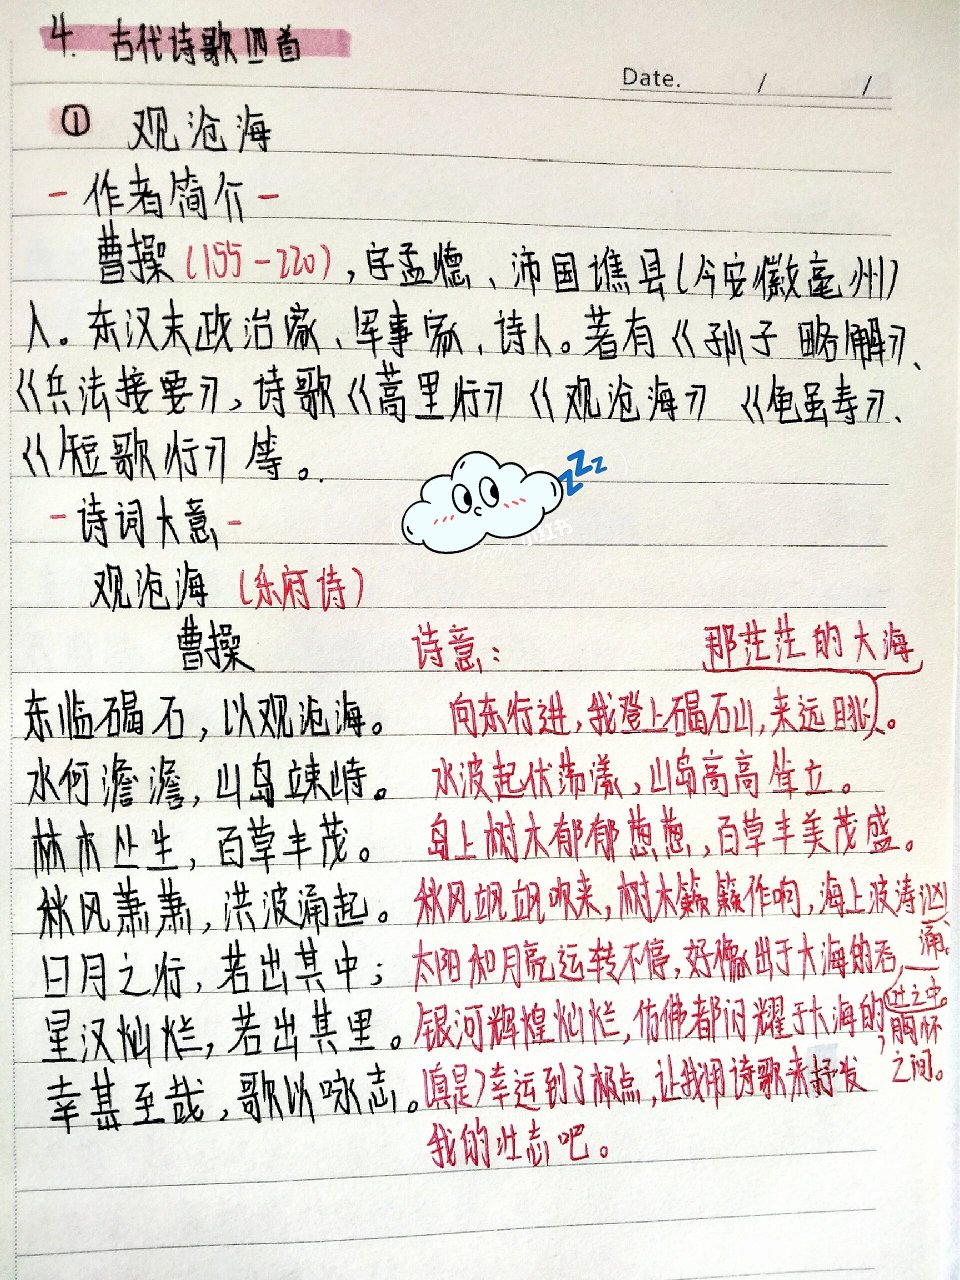 4. 古代诗歌四首
Date. / /
① 观沧海
-作者简介-
曹操(155-220),字孟德、沛国谯县(今安徽亳州)
人。东汉末政治家、军事家、诗人。著有《孙子略解》、
《兵法接要》,诗歌《蒿里行》《观沧海》《龟虽寿》、
《短歌行》等。
zzz
-诗词大意-
观沧海 (乐府诗)
曹操 诗意: 那茫茫的大海
东临碣石,以观沧海。 向东行进,我登上碣石山,来远眺。
水何澹澹,山岛竦峙。 水波起伏荡漾,山岛高高耸立。
林木丛生,百草丰茂。 岛上树木郁郁葱葱,百草丰美茂盛。
秋风萧萧,洪波涌起。 秋风飒飒吹来,树木簌簌作响,海上波涛汹涌。
日月之行,若出其中; 太阳和月亮运转不停,好像出于大海的吞吐之中,
星汉灿烂,若出其里。 银河辉煌灿烂,仿佛都闪耀于大海的胸怀之间。
幸甚至哉,歌以咏志。 真是幸运到了极点,让我用诗歌来抒发
我的壮志吧。